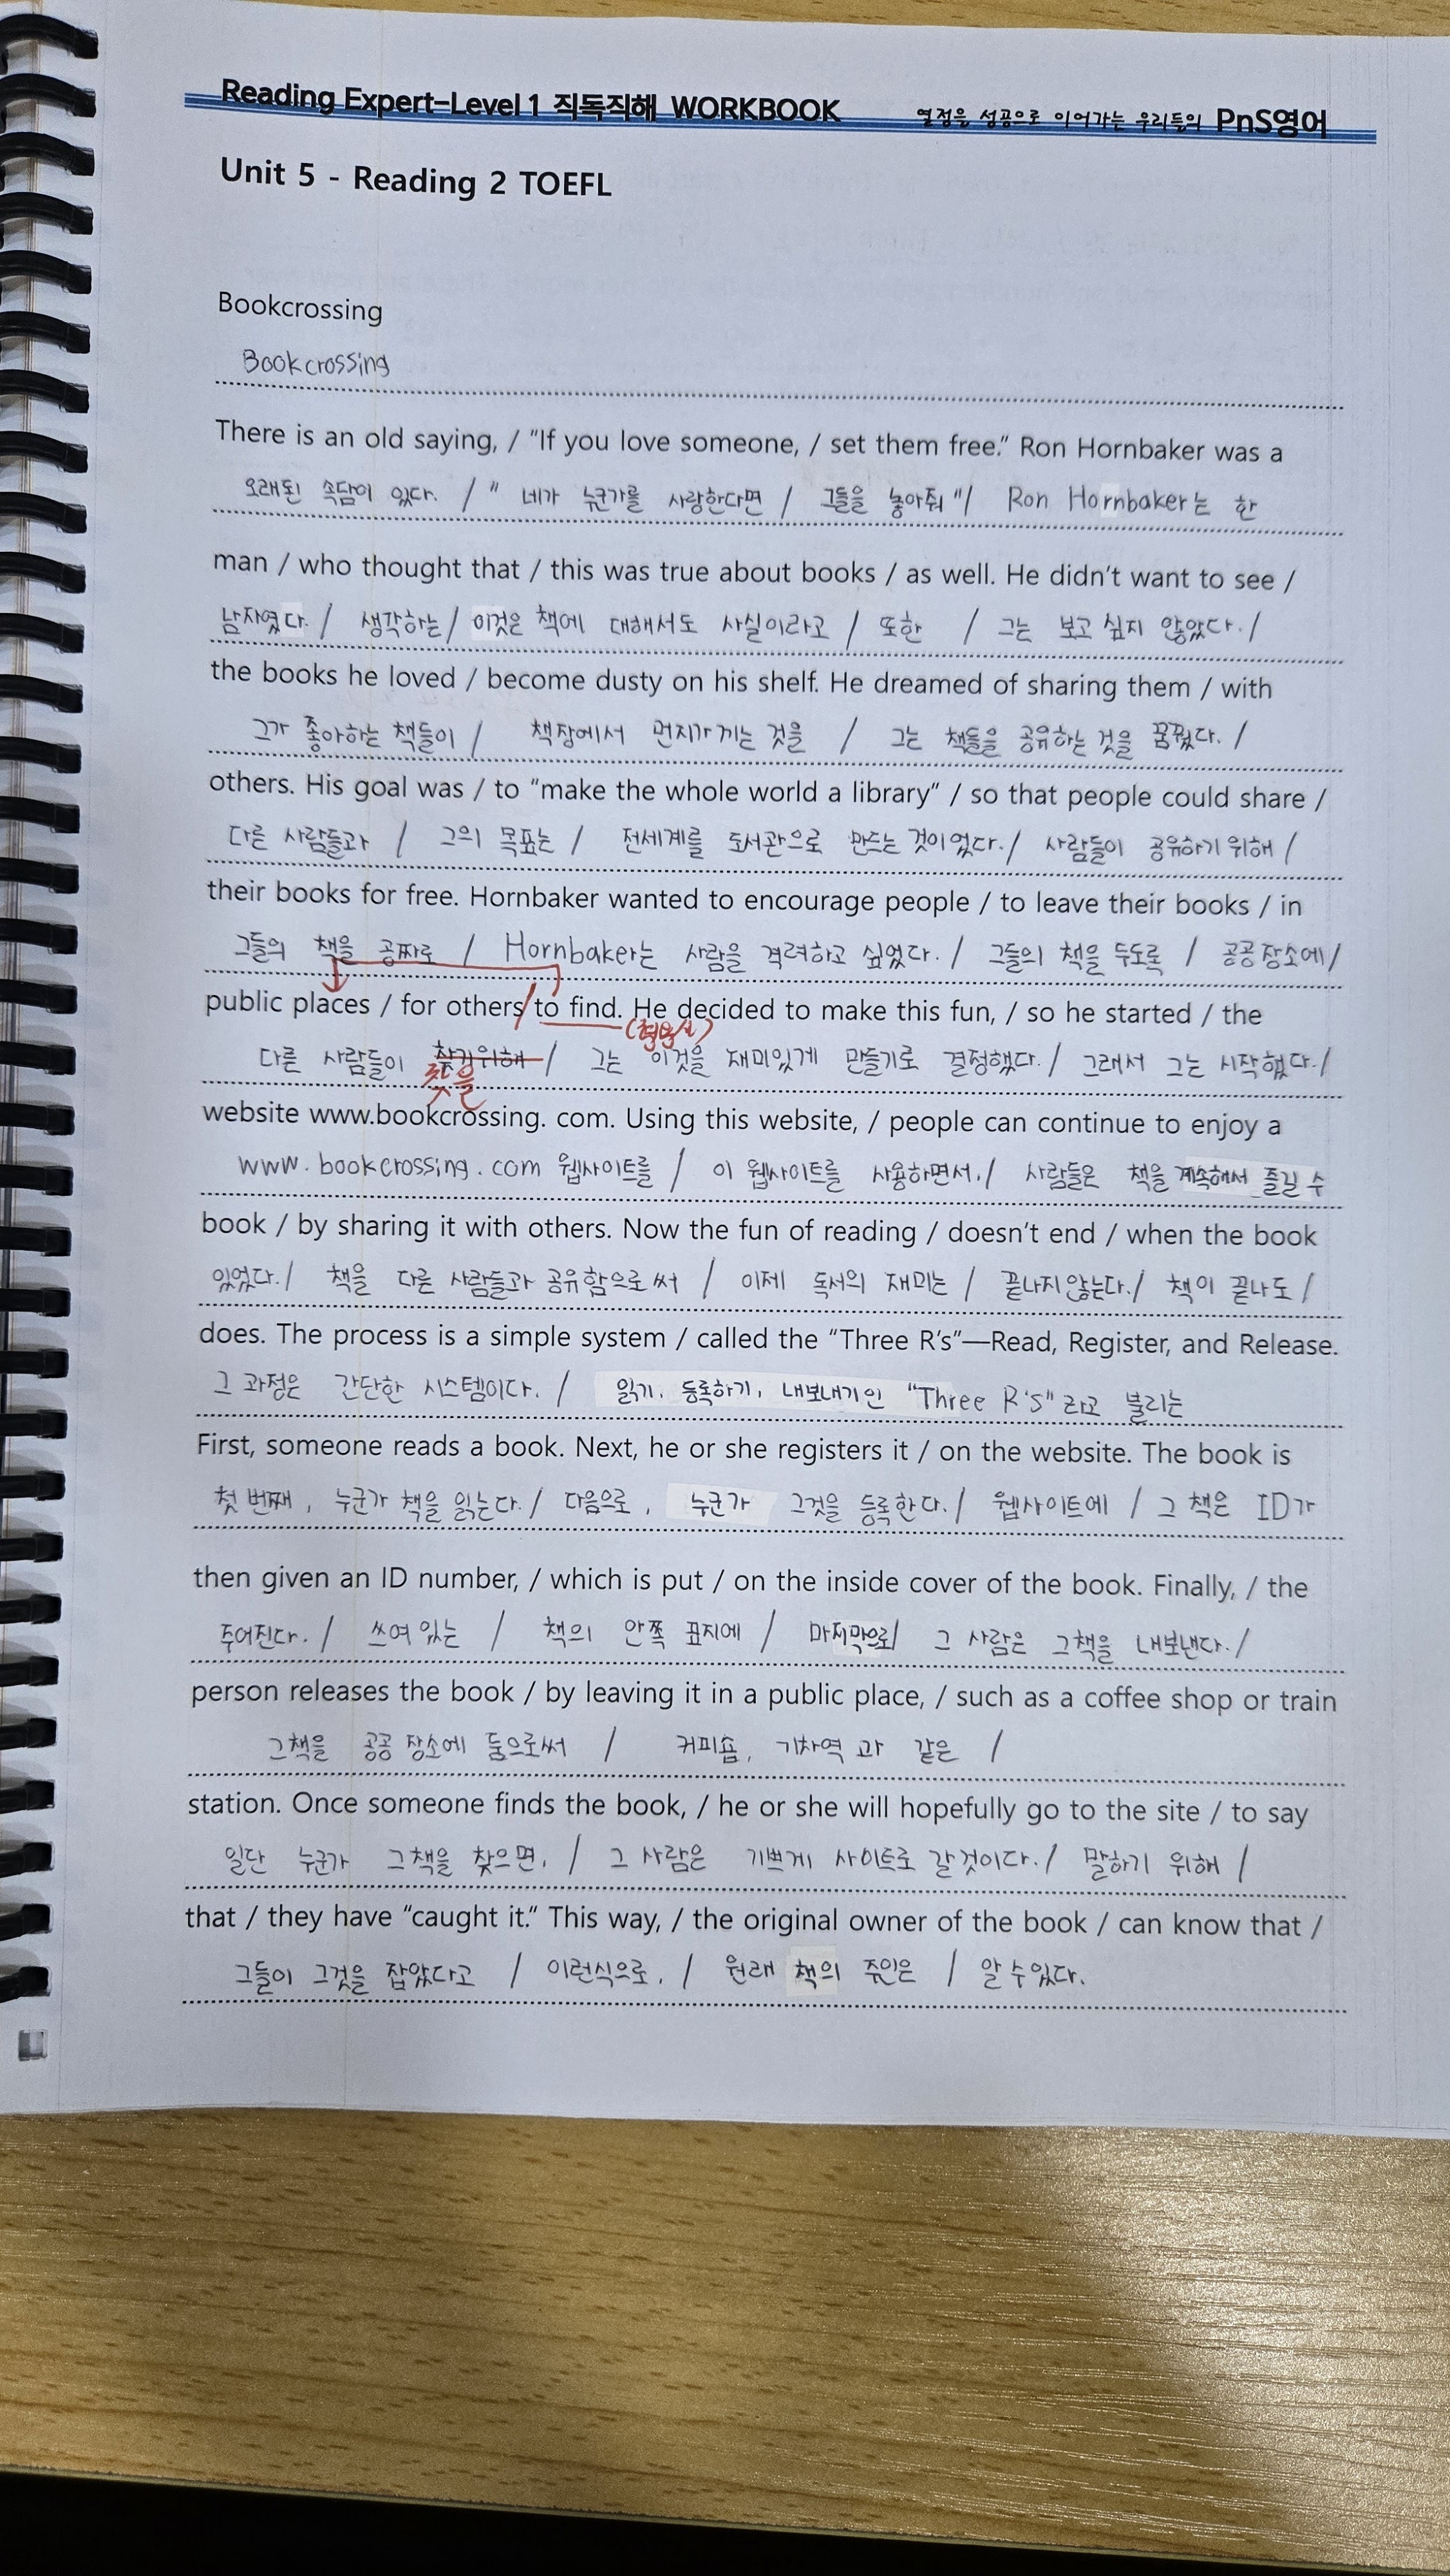 Reading Expert-Level 1 직독직해 WORKBOOK 열정을 성공으로 이어가는 우리들의 PnS영어
Unit 5 - Reading 2 TOEFL
Bookcrossing
Bookcrossing
There is an old saying, / "If you love someone, / set them free." Ron Hornbaker was a
오래된 속담이 있다. / " 네가 누군가를 사랑한다면 / 그들을 놓아줘 "/ Ron Hornbaker는 한
man / who thought that / this was true about books / as well. He didn't want to see /
남자였다. / 생각하는 / 이것은 책에 대해서도 사실이라고 / 또한 / 그는 보고 싶지 않았다. /
the books he loved / become dusty on his shelf. He dreamed of sharing them / with
그가 좋아하는 책들이 / 책장에서 먼지가 끼는 것을 / 그는 책들을 공유하는 것을 꿈꿨다. /
others. His goal was / to "make the whole world a library" / so that people could share /
다른 사람들과 / 그의 목표는 / 전세계를 도서관으로 만드는 것이었다. / 사람들이 공유하기 위해 /
their books for free. Hornbaker wanted to encourage people / to leave their books / in
그들의 책을 공짜로 / Hornbaker는 사람을 격려하고 싶었다. / 그들의 책을 두도록 / 공공 장소에 /
public places / for others / to find. He decided to make this fun, / so he started / the
(형용사)
다른 사람들이 찾기위해 / 그는 이것을 재미있게 만들기로 결정했다. / 그래서 그는 시작했다. /
찾을
website www.bookcrossing. com. Using this website, / people can continue to enjoy a
www.bookcrossing.com 웹사이트를 / 이 웹사이트를 사용하면서, / 사람들은 책을 계속해서 즐길 수
book / by sharing it with others. Now the fun of reading / doesn't end / when the book
있었다. / 책을 다른 사람들과 공유함으로써 / 이제 독서의 재미는 / 끝나지 않는다. / 책이 끝나도 /
does. The process is a simple system / called the "Three R's"—Read, Register, and Release.
그 과정은 간단한 시스템이다. / 읽기, 등록하기, 내보내기인 "Three R's" 라고 불리는
First, someone reads a book. Next, he or she registers it / on the website. The book is
첫 번째, 누군가 책을 읽는다. / 다음으로, 누군가 그것을 등록한다. / 웹사이트에 / 그 책은 ID가
then given an ID number, / which is put / on the inside cover of the book. Finally, / the
주어진다. / 쓰여 있는 / 책의 안쪽 표지에 / 마지막으로 / 그 사람은 그책을 내보낸다. /
person releases the book / by leaving it in a public place, / such as a coffee shop or train
그책을 공공 장소에 둠으로써 / 커피숍, 기차역 과 같은 /
station. Once someone finds the book, / he or she will hopefully go to the site / to say
일단 누군가 그책을 찾으면, / 그 사람은 기쁘게 사이트로 갈것이다. / 말하기 위해 /
that / they have "caught it." This way, / the original owner of the book / can know that /
그들이 그것을 잡았다고 / 이런식으로, / 원래 책의 주인은 / 알 수 있다.